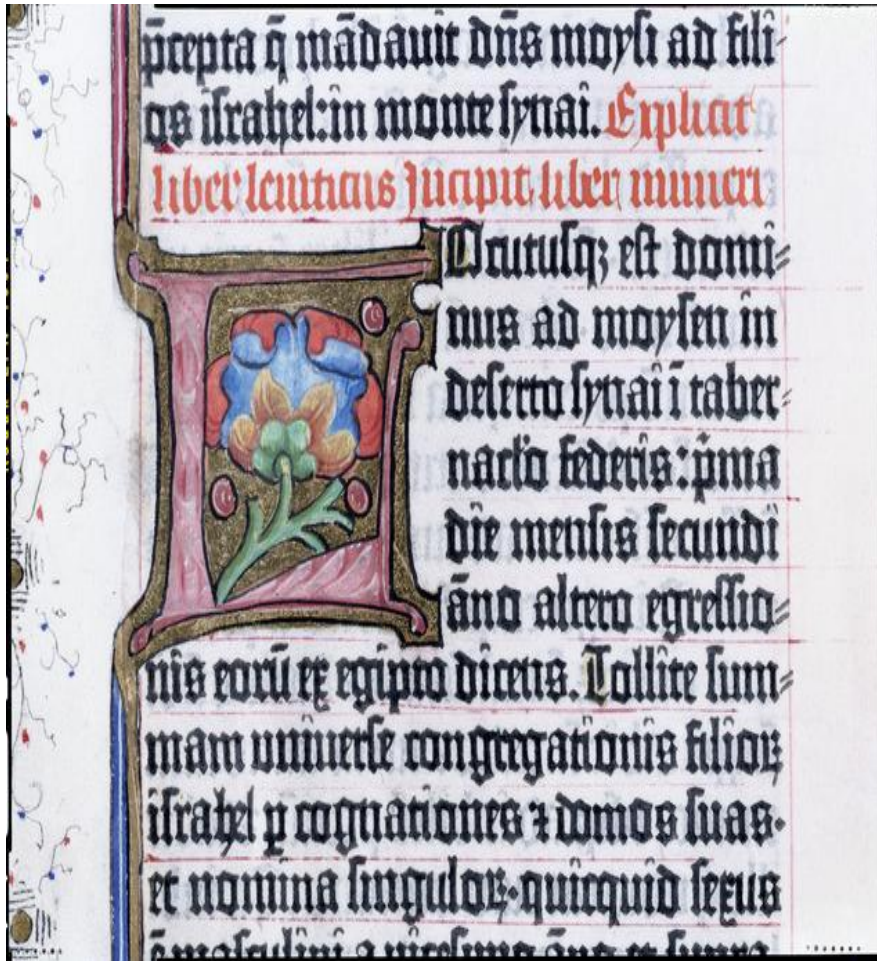 p̄cepta q̄ mādauit dn̄s moysi ad fili-
os israhel: in monte synai. Explicit
liber leuiticus Incipit liber numeri
LOcutusqꝫ est domi-
nus ad moysen in
deserto synai ī taber-
nacl'o federis: p̄ma
die mensis secundi
āno altero egressio-
nis eorū ex egipto dicens. Tollite sum-
mam uniuerse congregationis filioꝝ
israhel ꝑ cognationes ⁊ domos suas.
et nomina singuloꝝ. quicquid sexus
ē masculini a vicesimo āno et supra